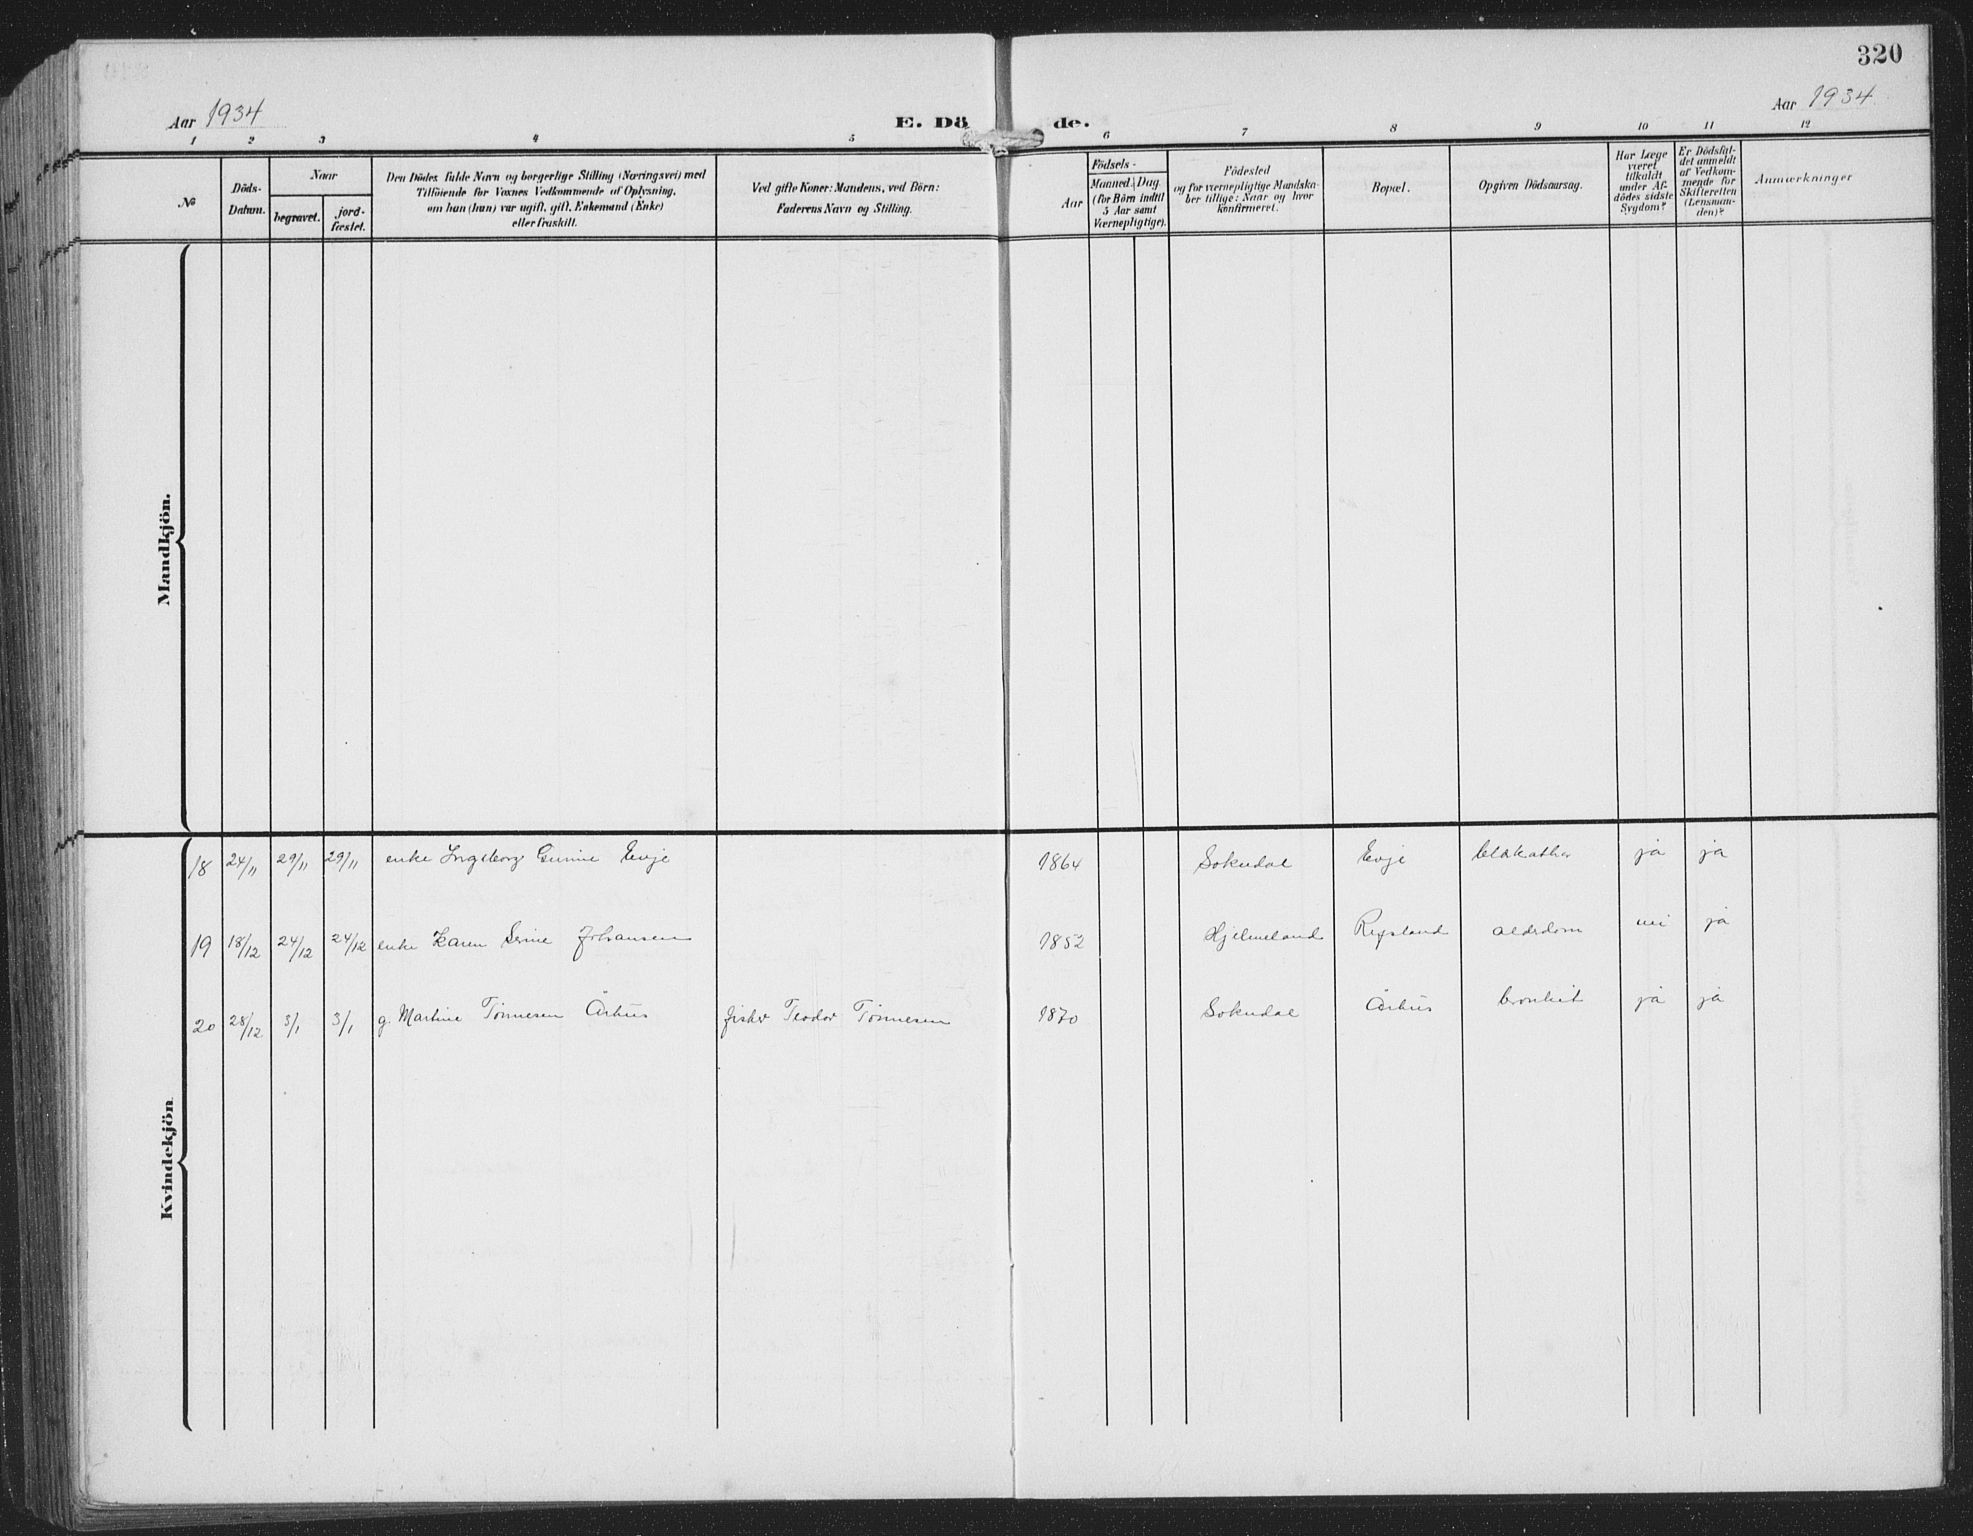 320
Aar 1934
E. Dö de.
Aar 1934
1 2 3 4 5 6 7 8 9 10 11 12
No
Döds-
Datum.
Naar
begravet.
jord-
fæstet.
Den Dödes fulde Navn og borgerlige Stilling (Næringsvei) med
Tilföiende for Voxnes Vedkommende af Oplysning,
om han (hun) var ugift, gift, Enkemand (Enke)
eller fraskilt.
Ved gifte Koner: Mandens, ved Börn:
Faderens Navn og Stilling.
Födsels-
Aar
Maaned. Dag
(for Börn indtil
5 Aar samt
Værnepligtige).
Födested
og for værnepligtige Mandska-
ber tillige: Naar og hvor
konfirmeret.
Bopæl.
Opgiven Dödsaarsag.
Har Læge
været
tilkaldt
under Af-
dödes sidste
Sygdom?
Er Dödsfal-
det anmeldt
af Vedkom-
mende for
Skifteretten
(Lensman-
den)?
Anmærkninger
Mandkjön.
Kvindekjön
18 24/11 29/11 29/11 enke Ingeborg Gurine Evje 1864 Sokndal Evje ja ja
19 18/12 24/12 24/12 enke Karen Serine Johansen 1852 Hjelmeland Refsland alderdom nei ja
20 28/12 3/1 3/1 g. Martine Tønnesen Århus fisker Teodor Tønnesen 1870 Sokndal Århus bronkit ja ja